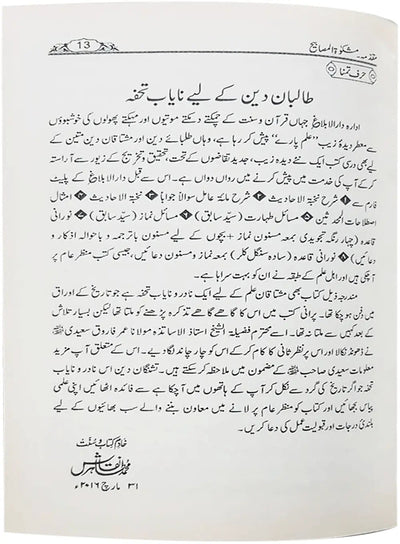 مقدمہ مشکوٰۃ المصابیح
13
حرفِ تمنا
طالبان دین کے لیے نایاب تحفہ
ادارہ دارالابلاغ جہاں قرآن و سنت کے چمکتے دمکتے موتیوں اور مہکتے پھولوں کی خوشبوؤں
سے معطر دیدۂ زیب ”علم پارے“ پیش کر رہا ہے، وہاں طلبائے دین اور مشتاقان دین متین کے
لیے بھی درسی کتب ایک نئے دیدہ زیب، جدید تقاضوں کے تحت تحقیق و تخریج کے زیور سے آراستہ
کر کے آپ کی خدمت میں پیش کرنے میں رواں دواں ہے۔ اس سے قبل دارالابلاغ کے پلیٹ
فارم سے ① شرح مائۃ عامل سوالاً جواباً ② نخبۃ الاحادیث ③ تحفۃ الاحادیث ④ امثال
اصطلاحات المحدثین ⑤ مسائل طہارت (سید سابق) ⑥ مسائل نماز (سید سابق) ⑦ نورانی
قاعدہ (چہار رنگہ تجویدی) بمعہ نماز + بچوں کے لیے مسنون باترجمہ و باحوالہ اذکار و
دعائیں) ⑧ نورانی قاعدہ (سادہ سنگل کلر) بمعہ نماز و مسنون دعائیں، جیسی کتب منظر عام پر
آ چکی ہیں اور اہل علم کے طبقہ نے ان کو بہت سراہا ہے۔
مندرجہ ذیل کتاب بھی مشتاقان علم کے لیے ایک نادر و نایاب تحفہ ہے جو تاریخ کے اوراق
میں دفن ہو چکا تھا۔ پرانی کتب میں اس کا گاہے گاہے تذکرہ پڑھنے کو ملتا تھا لیکن بسیار تلاش
کے بعد کہیں سے ملتا نہ تھا۔ اسے محترم فضیلۃ الشیخ استاذ الاساتذہ مولانا عمر فاروق سعیدی ﷾
نے ڈھونڈ نکالا اور اس پر نظر ثانی کا کام کر کے اس کو چار چاند لگا دیے۔ اس کے متعلق آپ مزید
معلومات سعیدی صاحب کے مضمون میں ملاحظہ کر سکتے ہیں۔ تشنگان دین اس نادر و نایاب
تحفہ جو اگر تاریخ کی گرد سے نکل کر آپ کے ہاتھوں میں آ چکا ہے سے فائدہ اٹھائیں اپنی علمی
پیاس بجھائیں اور کتاب کو منظر عام پر لانے میں معاون بننے والے سب بھائیوں کے لیے
بلندیٔ درجات اور قبولیت عمل کی دعا کریں۔
خادم کتاب و سنت
محمد طاہر نقاش
۳۱ مارچ ۲۰۱۶ء